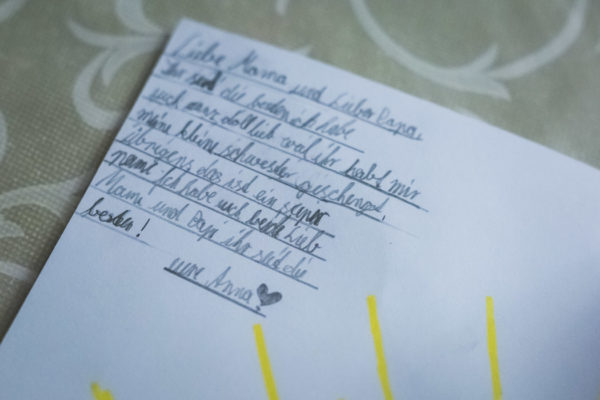 Liebe Mama und Lieber Papa,
Ihr seid die besten ich habe
euch ganz doll lieb weil ihr habt mir
meine kleine schwester geschengt,
übrigens das ist ein super
name Ich habe euch beide Lieb
Mama und Papi ihr seit die
besten!
eure Anna